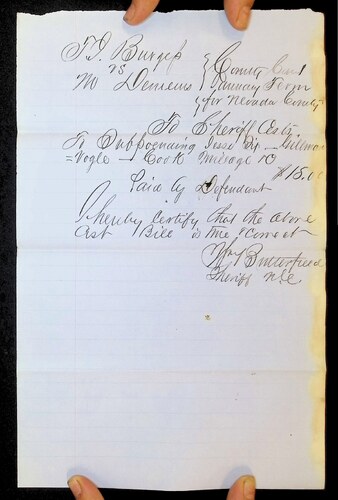 T. I. Burgess } County Court
vs } January Term
Wm Demeus } for Nevada County
To Sheriff Cests.
To Subpoending Jesse Six — Gillman
= Vogle — Cook Mileage 10 $15.00
Paid by Defendant
I hereby Certify that the above
Cost Bill is true & Correct
Wm Butterfield
Sheriff N.C